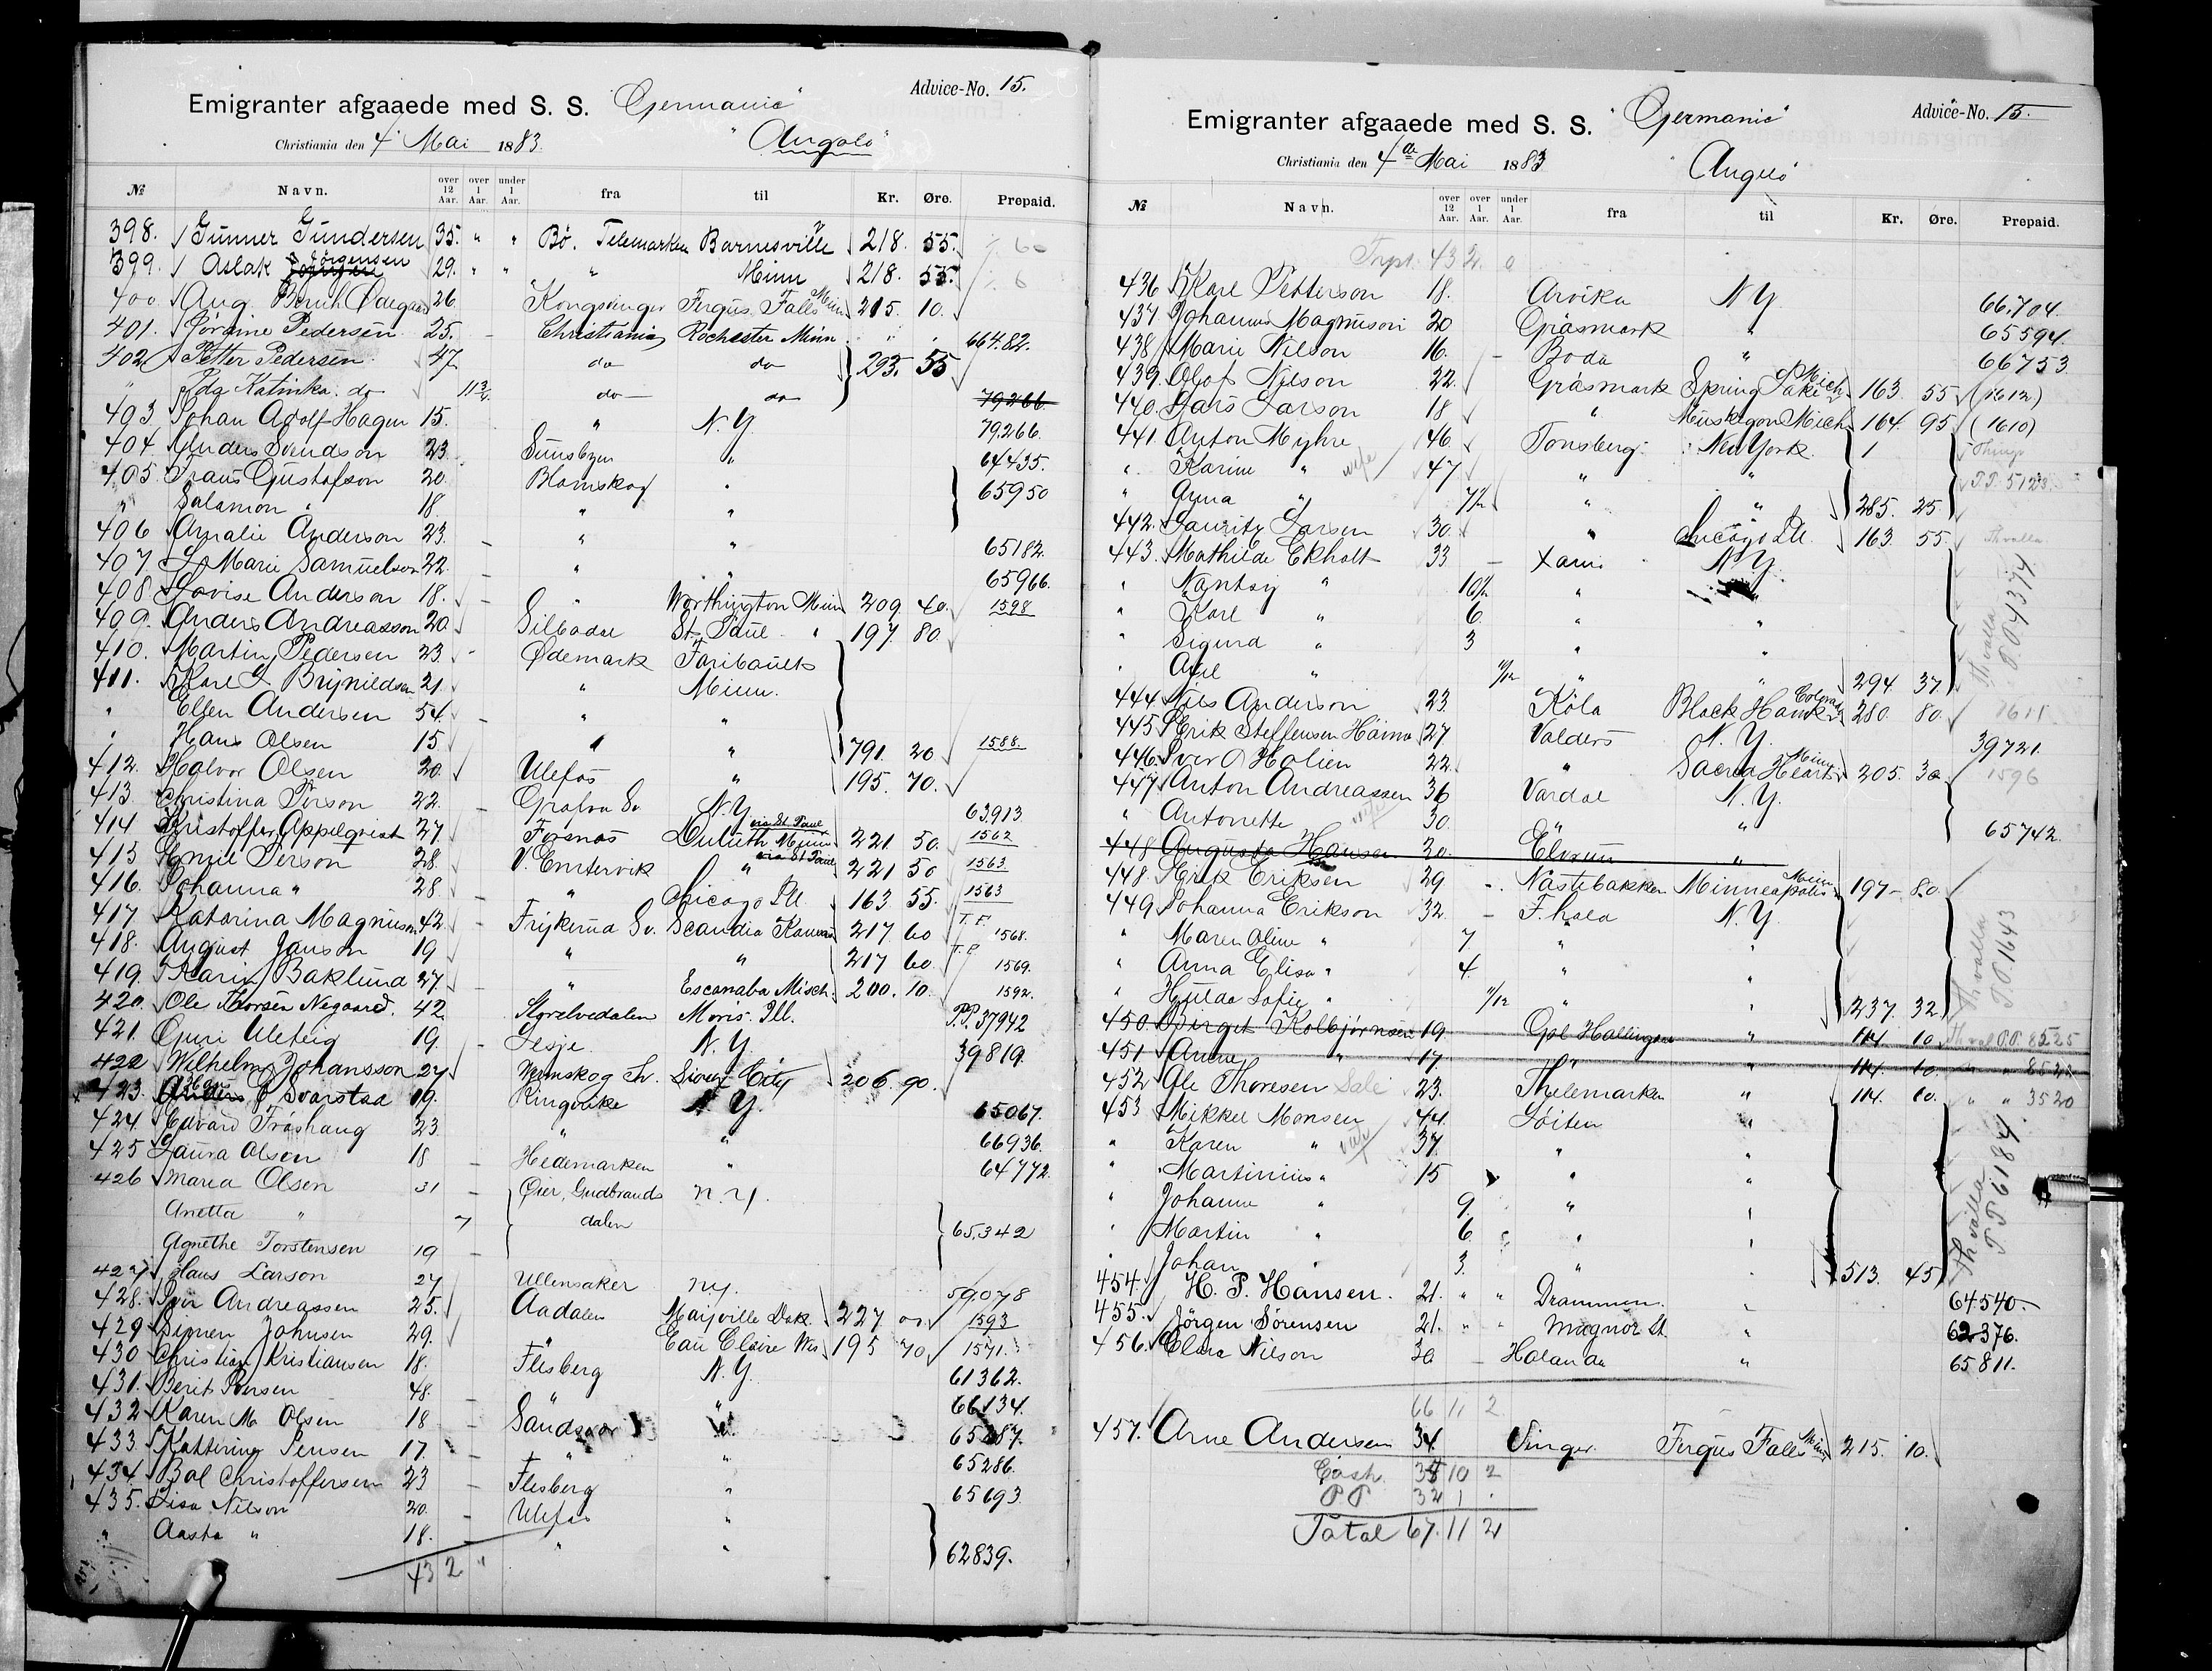 Advice-No. 15.
Emigranter afgaaede med S. S. "Germanic"
Christiania den 4 Mai 1883. "Angelo"
№ Navn. over 12 Aar. over 1 Aar. under 1 Aar. fra til Kr. Øre. Prepaid.
398. Gunner Gundersen 35. " " Bø. Telemarken Barnesville 218. 55.
399. Aslak Jörgensen 29. " " " Minn 218. 55.
400 Aug. 26 Kongsvinger Fergus Falls Minn 215. 10.
401. Jörgine Pedersen 25. - Christiania Rochester Minn " " 66482.
402 Petter Pedersen 47 do do } 293. 55
" Ida Katinka do 11 3/4 do do 79266.
403 Johan Adolf Hagen 15. " N.Y. 79266.
404 Anders Svendson 23 " 64435.
405 Frans Gustafson 20 Blomskog " } 65950
" Salamon " 18 " "
406 Amalie Anderson 23. - " " 65182.
407 Marie Samuelson 22. - " " 65966.
408 Lovise Anderson 18. - " Worthington Minn 209. 40. 1598
409. Anders Andreasson 20 Silbodal St. Paul " 197. 80
410. Martin Pedersen 23 - Ødemark Faribault
411. Karl J Brynildsen 21. " Minn.
" Ellen Andersen 54 - " "
" Hans Olsen 15 " " } 791. 20 1588.
412. Halvor Olsen 20. Ulefos " 195. 70.
413 Christina Person 22. - N.Y. 63913
414 Kristoffer Appelqvist 27. Fosnäs Duluth Minn via St Paul 221 50. 1562
415 Emil Person 28. V. Emtervik " via St Paul 221 50 1563.
416. Johanna " 28 - " Chicago Ill. 163 55. 1563
417 Katarina Magnuson 42. - Frykerud Sv. Scandia Kansas 217. 60 T.P. 1568.
418. August Janson 19 " " 217 60. T.P. 1569.
419. Karin Baklund 27. - " Escanaba Misch. 200. 10. 1592.
420. Ole Thorsen Negaard. 42. Storelvedalen Moris. Ill. P.P. 37942
421. Guri Uleteig 19. - Lesje N.Y. 39819.
422 Wilhelm Johansson 27 Sioux City 206. 90.
423. Svarstad 19. Ringerike N.Y. 65067.
424. Edvard Fröshaug 23 " " 66936.
425 Laura Olson 18 - Hedemarken " 64772.
426 Maria Olsen 31 - Øier, Gudbrands N.Y.
Anetta " 7 dalen } 65,342
Agnethe Torstensen 19 -
427 Hans Larson 27 Ullensaker N.Y. 59078
428. Iver Andreassen 25. Aadalen Mayville Dak. 227 00. 1593
429 Simen Johnsen 29. " Eau Claire Wis 195 70 1571.
430 Christian Kristiansen 18. Flesberg N.Y. 61362.
431. Berit 48. - " " 66134.
432 Karen M. Olsen 18 - Sandsvær " 65287.
433 Kattering Jensen 17. " " 65286.
434. Christoffersen 23 - Flesberg " 65693
435. Lisa Nilson 20. - Ulefos "
" Aasta " 18. - " " } 62839.
43 2 "
Advice-No. 15.
Emigranter afgaaede med S. S. "Germanic"
Christiania den 4de Mai 1883 "Angelo"
№ Navn. over 12 Aar. over 1 Aar. under 1 Aar. fra til Kr. Øre. Prepaid.
Trpt. 43 2. 0
436 Karl Petterson 18. Arvika N.Y. 66.704.
437 Johannes Magnuson 20 Gräsmark " 65594.
438 Marie Nilson 16. - Boda " 66753
439. Olof Nilson 22. Gräsmark Spring Lake Mich 163 55 (1612)
440 Lars Larson 18 " Muskegon Mich 164. 95 (1610)
441. Anton Myhre 46. Tonsberg New York 1
" Karine " wife 47 " "
" Anna " 7 1/2 " " 285. 25 P.P. 5123.
442. Lauritz Larsen 30. " Chicago Ill. 163 55. Thvalla
443. Mathilde Ekholt 33 - N.Y.
" " 10 1/2 " "
" Karl " 6 " "
" Sigurd " 3 " "
" Axel " 11/12 " " 294 37. Thvalla
444 Nils Anderson 23 Köla Black Hawk Colorad 280. 80. 1611
445 Erik Steffensen 27 Valders N.Y. 39721.
446. Iver O Holien 22. " Sacred Heart Minn 205. 30 1596
447 Anton Andreassen 36 Vardal N.Y.
" Antonette wife 30. " " } 65742.
448 Augusta Hansen 20. Elverum "
448. Erik Eriksen 29 - Nästebakken Minneapolis Minn 197 - 80.
449 Johanna Erikson 32. - N.Y.
" Maren Oline " 7 " "
" Anna Elisa " 4 " "
" Hulda Sofie " 11/12 " " 237. 32 Thvalla P.P. 1643
450. Birget Kolbjørnsen 19 Gol Hallingdal " 114. 10 P.P. 8525
451 Anne " 17. " " 114. 10.
452 Ole Thoresen 23. Thelemarken " 114. 10. " " 3520
453 Mikkel Monsen 44. Löiten "
" Karen " wife 37. " "
" Martinius " 15 " "
" Johanne " 9. " "
" Martin " 6. " "
" Johan " 3. " 513. 45 Thvalla P.P. 6184.
454. H. P. Hansen. 21. " " Drammen. " 64540.
455. Jörgen Sörensen 21. " " Magnor St. " 62376.
456. Clara Nilson 30 - " 65811.
66 11 2
457. Arne Andersen 34. Vinger Fergus Falls Minn 215. 10.
Cash. 10 2
P P 32 1 .
Total 67. 11 2